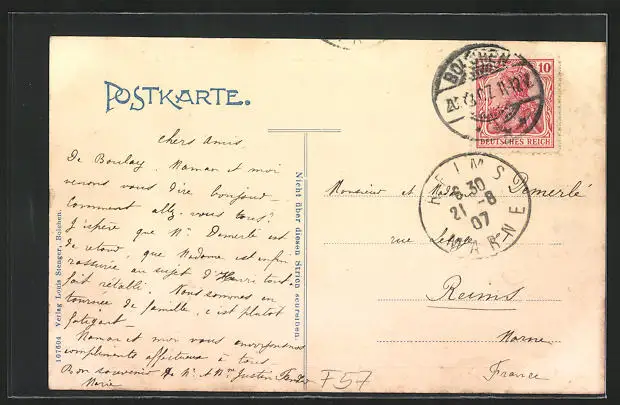 POSTKARTE.
chers amis,
De Boulay, Maman et moi
venons vous dire bonjour –
Comment allez-vous tous?
J'espère que Mr Demerlé est
de retour, que Madame est enfin
rassurée au sujet d'Henri tout-
fait rétabli. Nous sommes en
tournée de famille, c'est plutôt
fatigant –
Maman et moi vous envoyons nos
compliments affectueux à tous
Bon souvenir de Mr et Mme Justin
Marie
107604 Verlag Louis Stenger, Bolchen.
Nicht über diesen Strich schreiben.
BOLCHEN
10
DEUTSCHES REICH
REIMS
6.30
21-8
07
MARNE
Monsieur et Madame Demerlé
rue
Reims
Marne
France
F57